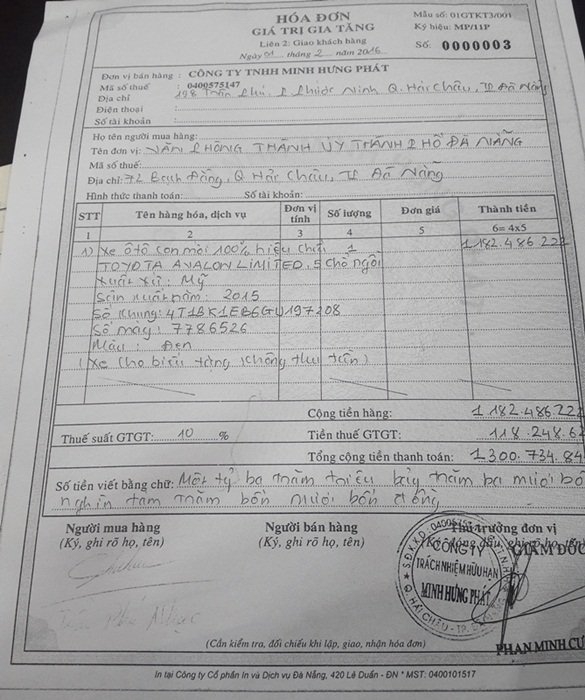 HÓA ĐƠN
GIÁ TRỊ GIA TĂNG
Liên 2: Giao khách hàng
Ngày 01 tháng 2 năm 2016
Mẫu số: 01GTKT3/001
Ký hiệu: MP/11P
Số: 0000003
Đơn vị bán hàng : CÔNG TY TNHH MINH HƯNG PHÁT
Mã số thuế : 0400575147
Địa chỉ : 198 Trần Phú, P Phước Ninh Q. Hải Châu, TP Đà Nẵng
Điện thoại :
Số tài khoản :
Họ tên người mua hàng:
Tên đơn vị: VĂN PHÒNG THÀNH ỦY THÀNH PHỐ ĐÀ NẴNG
Mã số thuế:
Địa chỉ: 72 Bạch Đằng, Q Hải Châu, TP Đà Nẵng
Hình thức thanh toán: Số tài khoản:
STT Tên hàng hóa, dịch vụ Đơn vị tính Số lượng Đơn giá Thành tiền
1 2 3 4 5 6= 4x5
1) Xe ôtô con mới 100% hiệu 1 1 182.486 222
TOYOTA AVALON LIMITED, 5 chỗ ngồi
Xuất xứ: Mỹ
Sản xuất năm: 2015
Số khung: 4T1BK1EB6GU197208
Số máy: 7786526
Màu : Đen
(Xe cho biếu tặng không thu tiền)
Cộng tiền hàng: 1 182.486.222
Thuế suất GTGT: 10 % Tiền thuế GTGT: 118.248.62
Tổng cộng tiền thanh toán: 1.300.734.84
Số tiền viết bằng chữ: Một tỷ ba trăm triệu bảy trăm ba mươi bố
nghìn tám trăm bốn mươi bốn đồng
Người mua hàng Người bán hàng Thủ trưởng đơn vị
(Ký, ghi rõ họ, tên) (Ký, ghi rõ họ, tên) (Ký, đóng dấu, ghi rõ họ, tên)
GIÁM ĐỐC
CÔNG TY
TRÁCH NHIỆM HỮU HẠN
MINH HƯNG PHÁT
Q. HẢI CHÂU - TP.
PHAN MINH CƯ
(Cần kiểm tra, đối chiếu khi lập, giao, nhận hóa đơn)
In tại Công ty Cổ phần In và Dịch vụ Đà Nẵng, 420 Lê Duẩn - ĐN * MST: 0400101517